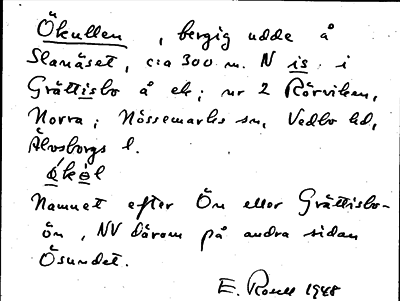 Ökullen, bergig udde å
Slanäset, c:a 300 m. N is. i
Grättisbo å ek; nr 2 Rörviken,
Norra; Nössemarks sn, Vedbo hd,
Älvsborgs l.
ö́køl
Namnet efter Ön eller Grättisbo-
ön, NV därom på andra sidan
Ösundet.
E. Rosell 1948